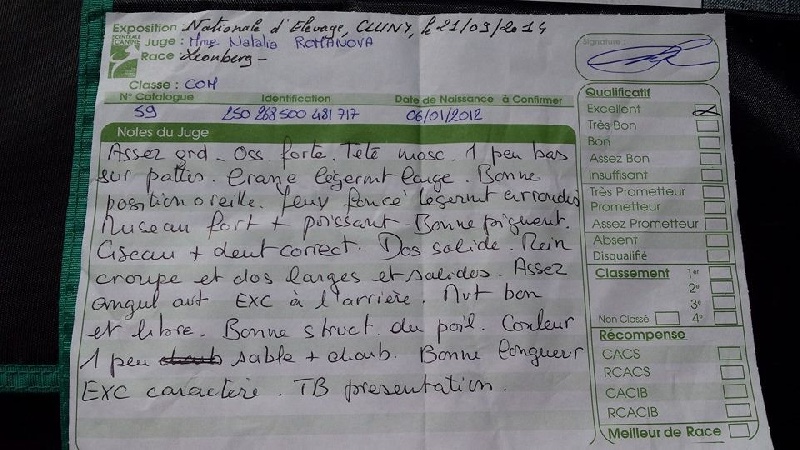 Exposition Nationale d'Elevage, CLUNY, le 21/09/2014
CENTRALE CANINE
Juge : Mme. Natalia ROMANOVA
Race Leonberg -
Classe : COM
N° Catalogue Identification Date de Naissance à Confirmer
59 250 268 500 481 717 06/01/2012
Notes du Juge
Assez grd. Oss forte. Tête masc. 1 peu bas
sur pattes. Crane légermt large. Bonne
position oreille. Yeux foncé légermt arrondis
Museau fort + puissant Bonne pigment.
Ciseau + dent correct. Dos solide. Rein
croupe et dos larges et solides. Assez
angul avt EXC à l'arrière. Mvt bon
et libre. Bonne struct. du poil. Couleur
1 peu sable + charb. Bonne longueur
EXC caractère. TB présentation.
Signature :
Qualificatif
Excellent
Très Bon
Bon
Assez Bon
Insuffisant
Très Prometteur
Prometteur
Assez Prometteur
Absent
Disqualifié
Classement 1er
2e
3e
Non Classé 4e
Récompense
CACS
RCACS
CACIB
RCACIB
Meilleur de Race